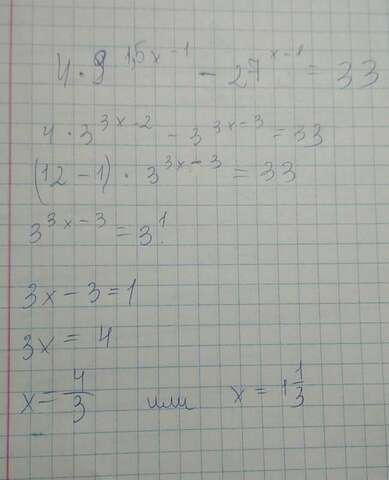 4 · 9^{1,5x-1} - 27^{x-1} = 33
4 · 3^{3x-2} - 3^{3x-3} = 33
(12 - 1) · 3^{3x-3} = 33
3^{3x-3} = 3^{1}.
3x - 3 = 1
3x = 4
x = \frac{4}{3} или x = 1\frac{1}{3}